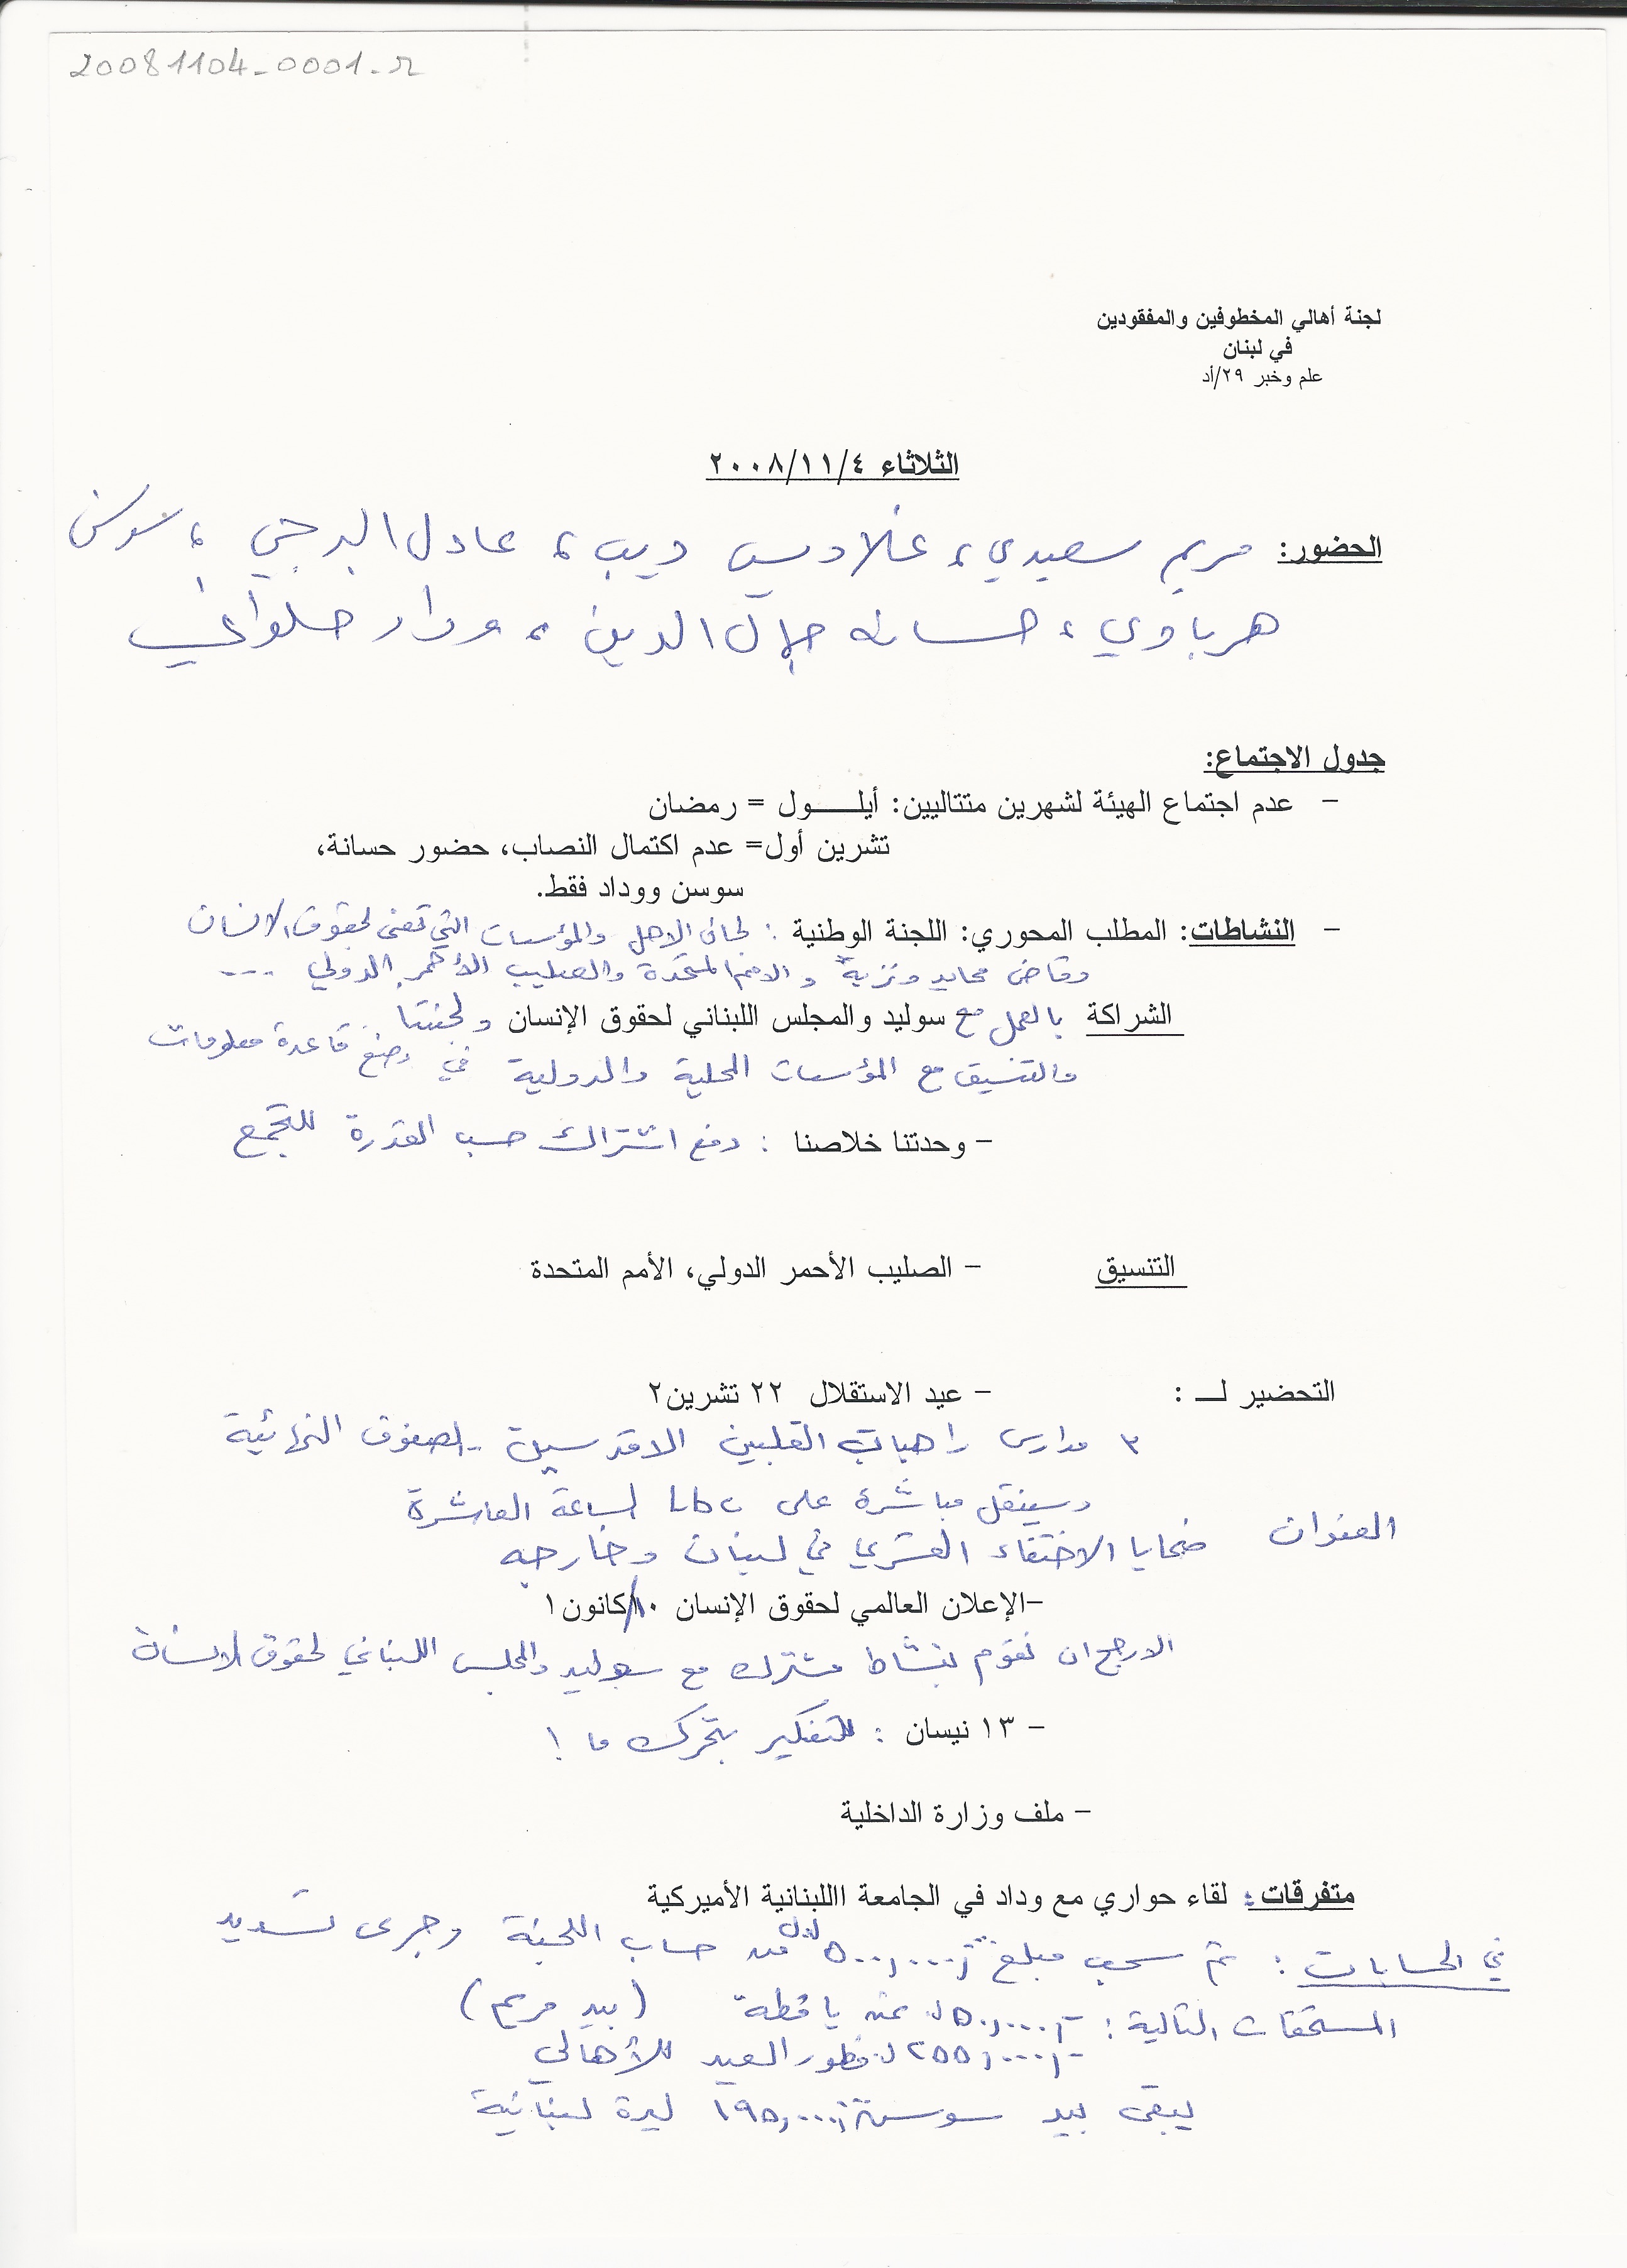 20081104-0001-r
لجنة أهالي المخطوفين والمفقودين
في لبنان
علم وخبر ٢٩/أد
الثلاثاء ٢٠٠٨/١١/٤
الحضور: مريم سعيدي، غلاديس ديب، عادل البرجي، سوسن
هرباوي، حسانة جمال الدين، وداد حلواني
جدول الاجتماع:
- عدم اجتماع الهيئة لشهرين متتاليين: أيلـــــول = رمضان
تشرين أول= عدم اكتمال النصاب، حضور حسانة،
سوسن ووداد فقط.
- النشاطات: المطلب المحوري: اللجنة الوطنية : لجان الاهل والمؤسسات التي تعنى بحقوق الانسان
وقاض محايد ونزيه والامم المتحدة والصليب الأحمر الدولي ---
الشراكة بالعمل مع سوليد والمجلس اللبناني لحقوق الإنسان ولجنتنا
والتنسيق مع المؤسسات المحلية والدولية في وضع قاعدة معلومات
- وحدتنا خلاصنا : دفع اشتراك حسب القدرة للتجمع
التنسيق - الصليب الأحمر الدولي، الأمم المتحدة
التحضير لـــ : - عيد الاستقلال ٢٢ تشرين٢
٣ مدارس راهبات القلبين الاقدسين - الصفوف النهائية
وسينقل مباشرة على Lbc الساعة العاشرة
العنوان ضحايا الاختفاء القسري في لبنان وخارجه
-الإعلان العالمي لحقوق الإنسان ١٠/كانون١
الارجح ان نقوم بنشاط مشترك مع سوليد والمجلس اللبناني لحقوق الانسان
- ١٣ نيسان : للتفكير بتحرك ما !
- ملف وزارة الداخلية
متفرقات: لقاء حواري مع وداد في الجامعة االلبنانية الأميركية
في الحسابات : تم سحب مبلغ ٥٠٠,٠٠٠ ل.ل من حساب اللجنة وجرى تسديد
المستحقات التالية : ٥٠,٠٠٠ ل. عن يافطة (بيد مريم)
٢٥٥,٠٠٠ ل. فطور العيد للأهالي
يبقى بيد سوسن ١٩٥,٠٠٠ ليرة لبنانية